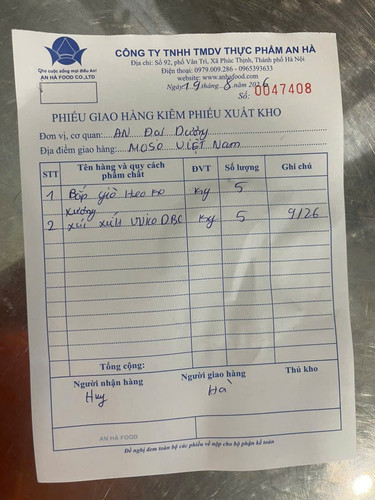 Cho cuộc sống mọi điều An!
AN HÀ FOOD CO.,LTD
CÔNG TY TNHH TMDV THỰC PHẨM AN HÀ
Địa chỉ: Số 92, phố Văn Trì, Xã Phúc Thịnh, Thành phố Hà Nội
Điện thoại: 0979.009.286 - 0965393633
website: www.anhafood.com
Ngày 19 tháng 8 năm 2026
Số: 0047408
PHIẾU GIAO HÀNG KIÊM PHIẾU XUẤT KHO
Đơn vị, cơ quan: AN Đại Dương
Địa điểm giao hàng: MOSO VIỆT Nam
STT Tên hàng và quy cách phẩm chất ĐVT Số lượng Ghi chú
1 Bắp giò Heo ko xương Kg 5
2 xúc xích DBC Kg 5 9/26
Tổng cộng:
Người nhận hàng Người giao hàng Thủ kho
Huy Hà
AN HÀ FOOD
Đề nghị đem toàn bộ các phiếu về nộp cho bộ phận kế toán